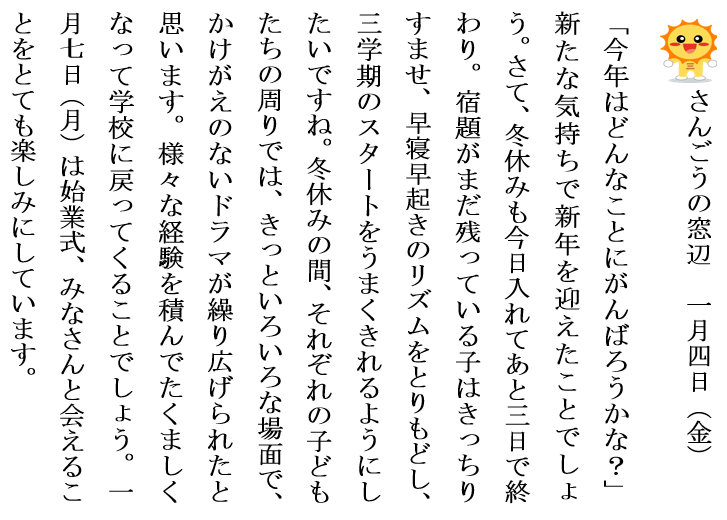 さんごうの窓辺　一月四日（金）
「今年はどんなことにがんばろうかな？」
新たな気持ちで新年を迎えたことでしょ
う。さて、冬休みも今日入れてあと三日で終
わり。宿題がまだ残っている子はきっちり
すませ、早寝早起きのリズムをとりもどし、
三学期のスタートをうまくきれるようにし
たいですね。冬休みの間、それぞれの子ども
たちの周りでは、きっといろいろな場面で、
かけがえのないドラマが繰り広げられたと
思います。様々な経験を積んでたくましく
なって学校に戻ってくることでしょう。一
月七日（月）は始業式、みなさんと会えるこ
とをとても楽しみにしています。